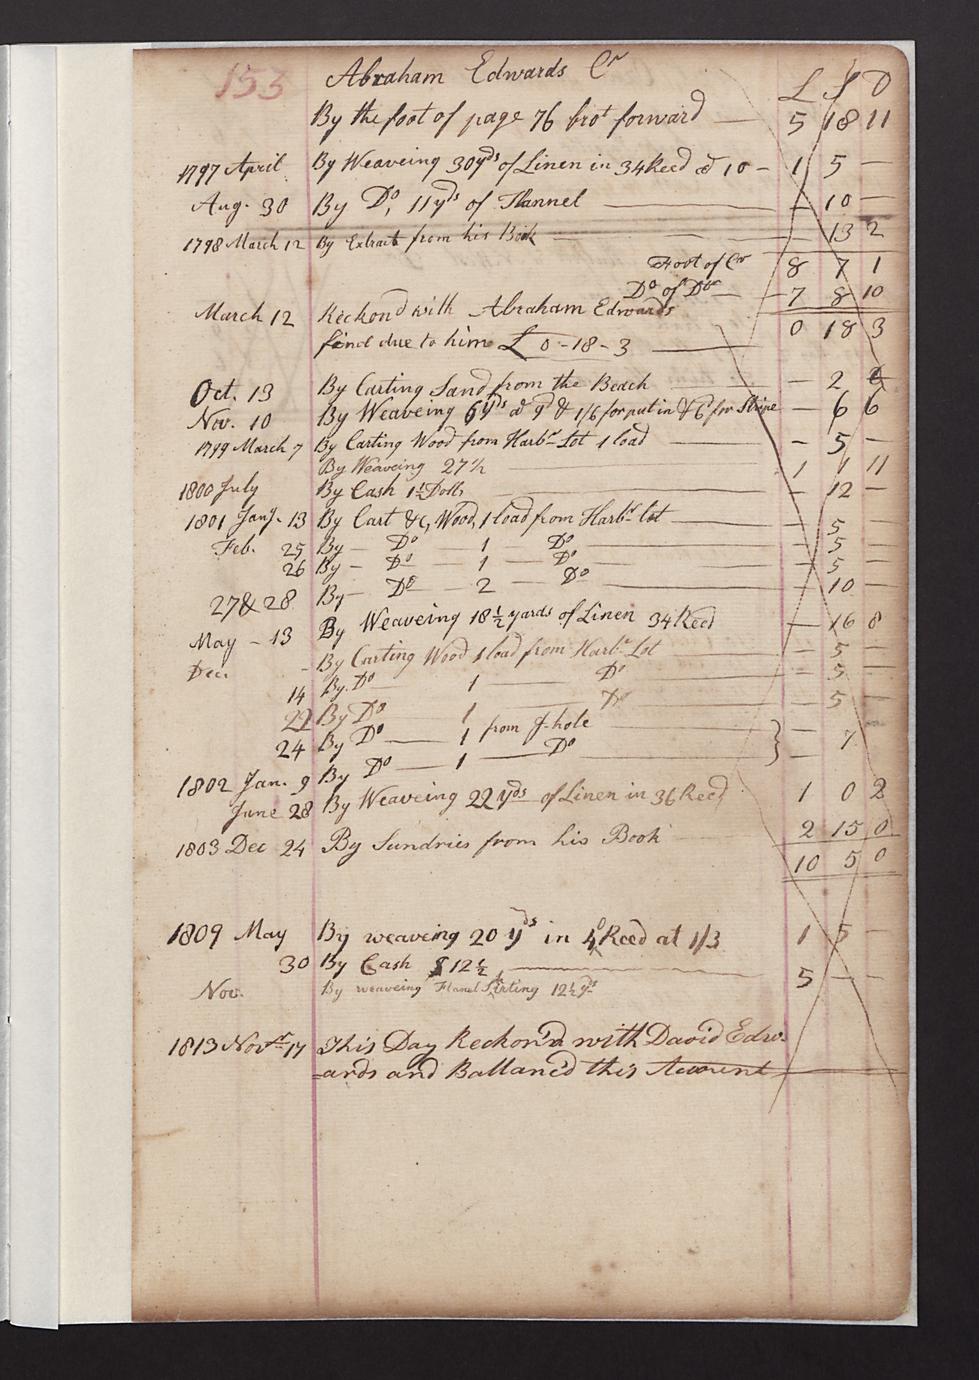 153 Abraham Edwards Cr L S D
By the foot of page 76 brot forward — 5 18 11
1797 April By Weaveing 30yds of Linen in 34 Reed @ 10 - 1 5 —
Aug. 30 By Do, 11yds of Flannel — - 10 —
1798 March 12 By Extract from his Book — - 13 2
Foot of Cr 8 7 1
Do of Dor — 7 8 10
March 12 Reckond with Abraham Edwards 0 18 3
find due to him £ 0-18-3 —
Oct. 13 By Carting Sand from the Beach — - 2
Nov. 10 By Weaveing 6yds @ 9d & 1/6 for put in & 6d for Stripe — 6 6
1799 March 7 By Carting Wood from Harbr Lot 1 load — - 5 —
By Weaveing 27½ — 1 1 11
1800 July By Cash 1½ Dolls — - 12 —
1801 Jany. 13 By Cart &c, Wood, 1 load from Harbr lot — - 5 —
Feb. 25 By — Do — 1 — Do — - 5 —
26 By — Do — 1 — Do — - 5 —
27 & 28 By — Do — 2 — Do — - 10 —
May - 13 By Weaveing 18½ yards of Linen 34 Reed — 16 8
Dec. - By Carting Wood 1 load from Harbr Lot — - 5 —
14 By. Do — 1 — Do — - 5 —
22 By Do — 1 Do — - 5 —
24 By Do — 1 from J-hole } — 7
1802 Jan. 9 By Do — 1 — Do
June 28 By Weaveing 22 yds of Linen in 36 Reed 1 0 2
1803 Dec 24 By Sundries from his Book 2 15 0
10 5 0
1809 May By weaving 20 yds in Reed at 1/3 1 5 —
30 By Cash $ 12½ — 5 — —
Nov. By weaveing Flanel Sirting 12½ yds
1813 Novr 17 This Day Reckon'd with David Edw
ards and Ballanc'd this Account